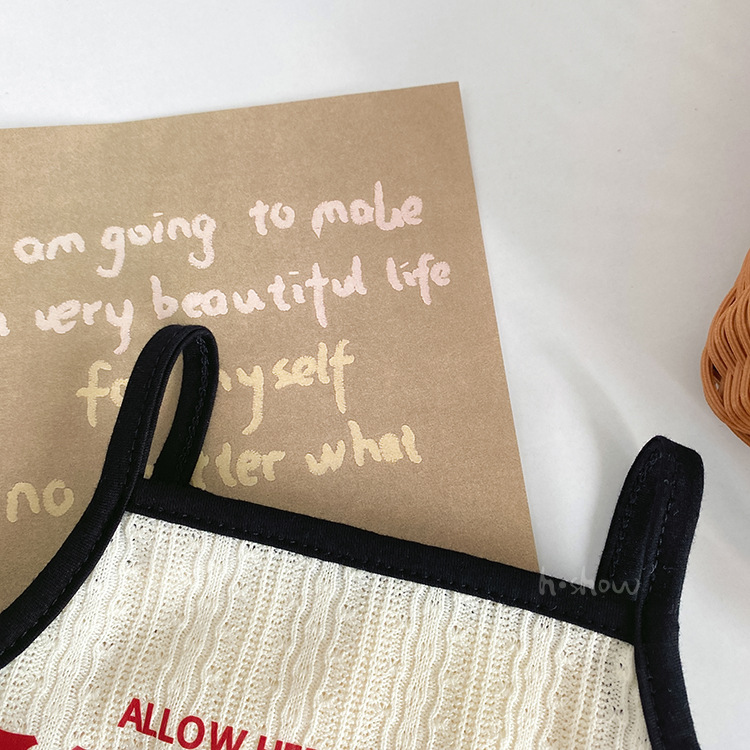 am going to make
very beautiful life
for myself
no matter what
h•show
ALLOW HER